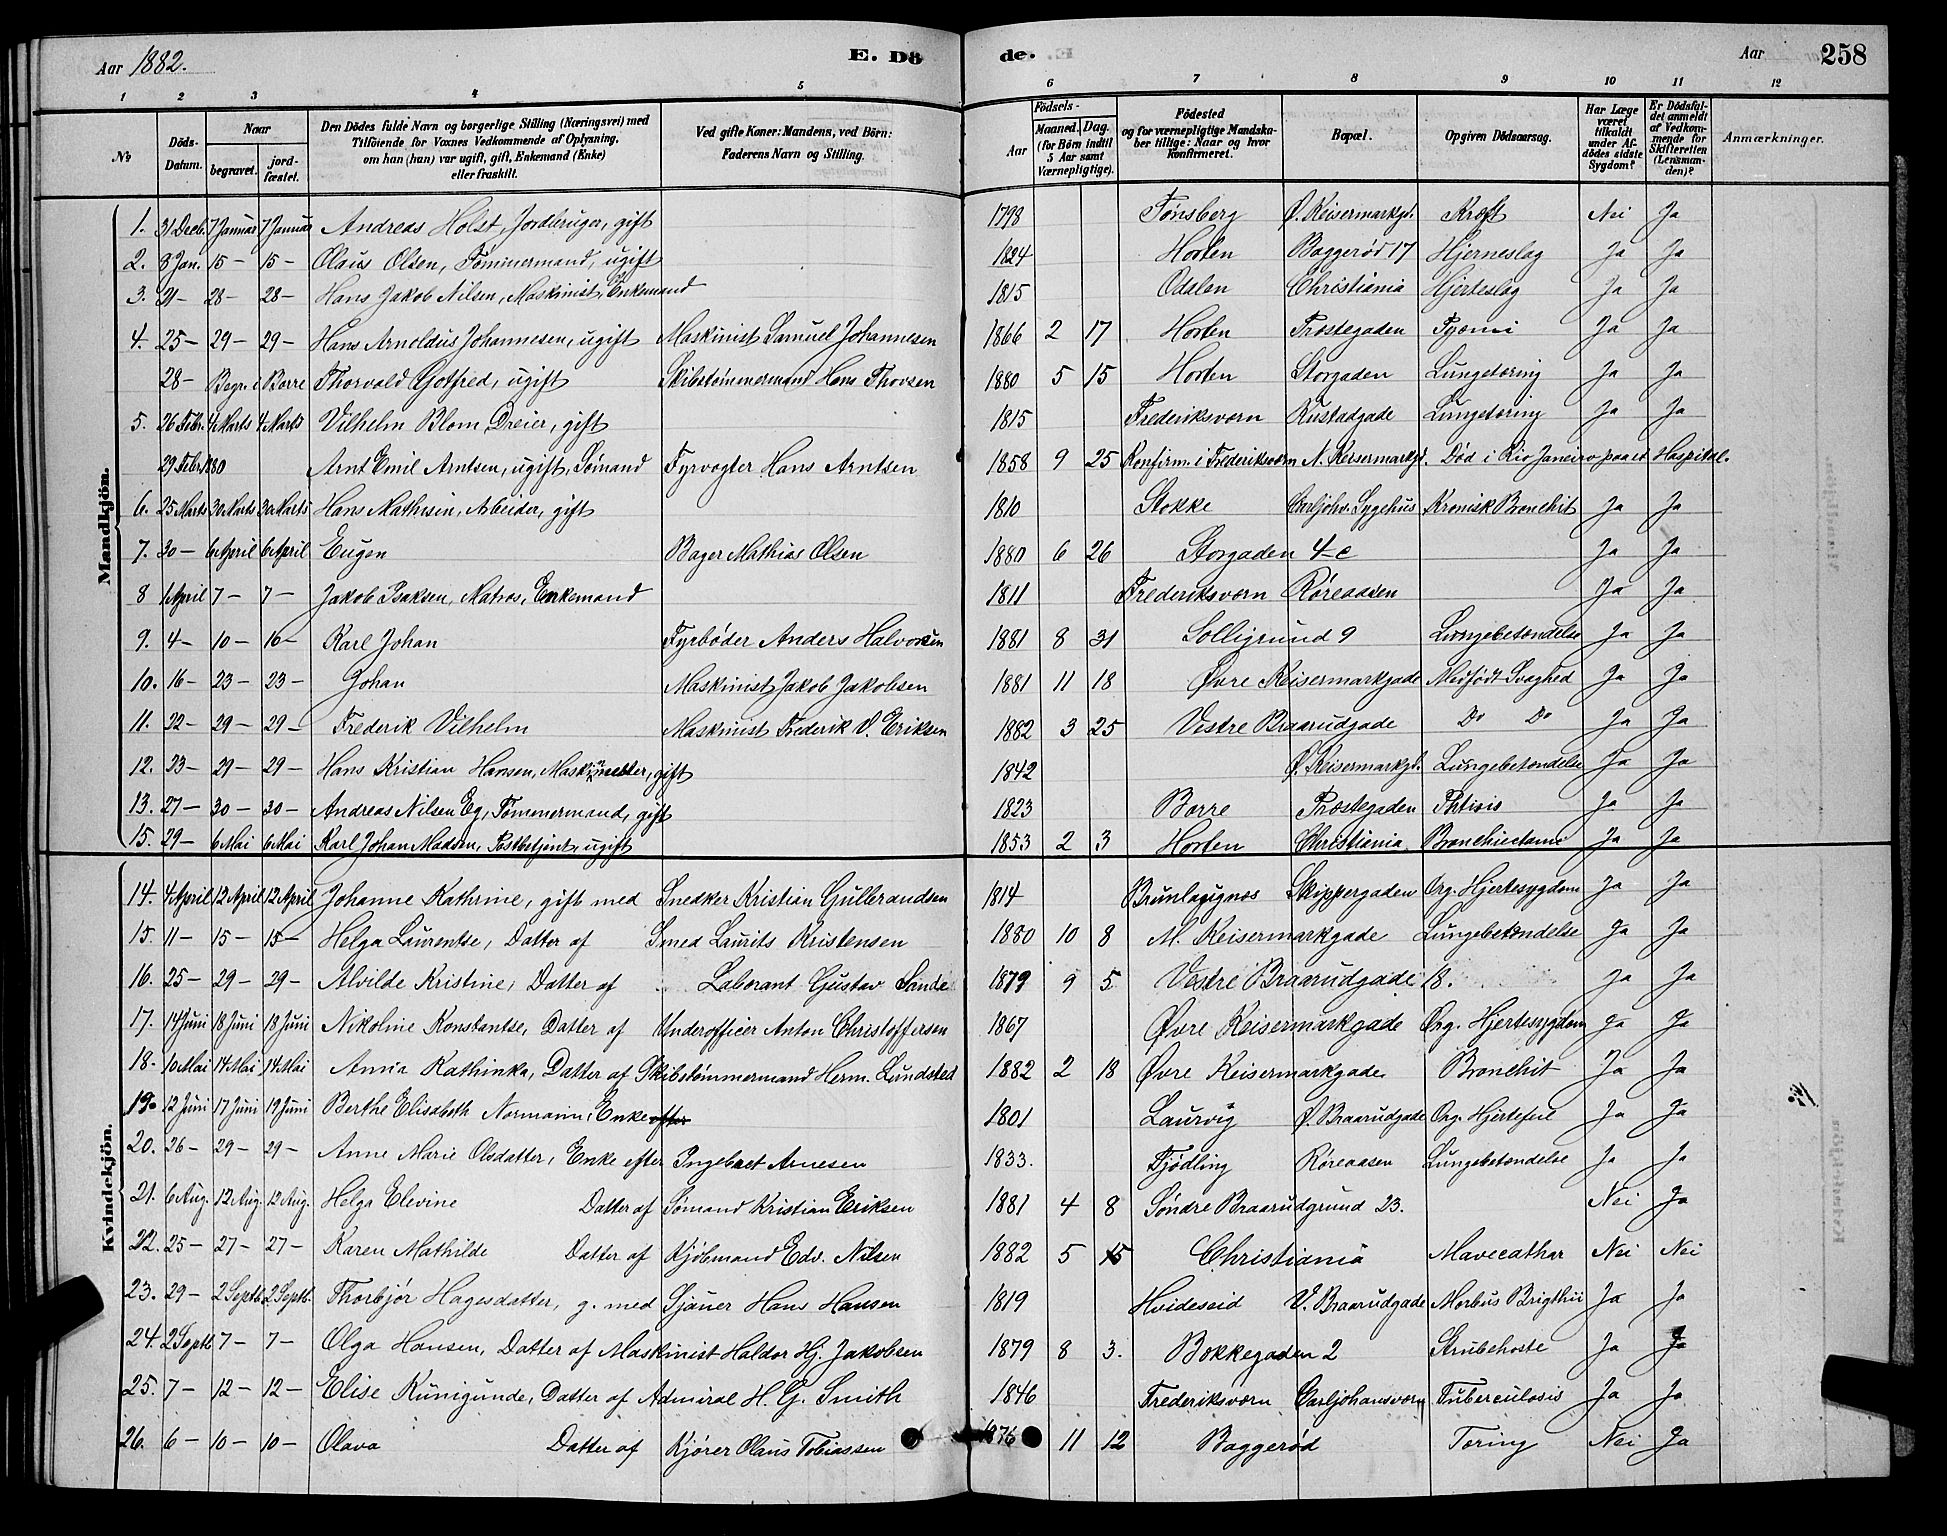 Aar 1882. E. Dö de. Aar 258
1 2 3 4 5 6 7 8 9 10 11 12
No Döds-Datum. Naar begravet. jordfæstet. Den Dödes fulde Navn og borgerlige Stilling (Næringsvei) med Tilföiende for Voxnes Vedkommende af Oplysning, om han (hun) var ugift, gift, Enkemand (Enke) eller fraskilt. Ved gifte Koner: Mandens, ved Börn: Faderens Navn og Stilling. Födsels- Aar Maaned. Dag. (for Börn indtil 5 Aar samt Værnepligtige). Födested og for værnepligtige Mandskaber tillige: Naar og hvor konfirmeret. Bopæl. Opgiven Dödsaarsag. Har Læge været tilkaldt under Afdödes sidste Sygdom? Er Dödsfaldet anmeldt af Vedkommende for Skifteretten (Lensmanden)? Anmærkninger.
Mandkjön.
1. 31 Decb. 7 Januar 7 Januar Andreas Holst, Jordbruger, gift 1798 Tønsberg Ø. Keisermarkgd. Kræft Nei Ja
2. 8 Jan. 15 – 15 – Olaus Olsen, Tømmermand, ugift 1824 Horten Baggerød 17 Hjerneslag Ja Ja
3. 21 – 28 – 28 – Hans Jakob Nilsen, Maskinist, Enkemand 1815 Odalen Christiania Hjerteslag Ja Ja
4. 25 – 29 – 29 – Hans Arnoldus Johannesen, ugift Maskinist Samuel Johannesen 1866 2 17 Horten Præstegaden Pyæmi Ja Ja
28 – Begr. i Borre Thorvald Gotfred, ugift Skibstømmermand Hans Thovsen 1880 5 15 Horten Storgaden Lungetæring Ja Ja
5. 26 Febr. 4 Marts 4 Marts Vilhelm Blom Dreier, gift 1815 Frederiksværn Rustadgade Lungetæring Ja Ja
29 Febr. 1880 Arnt Emil Arntsen, ugift, Sømand Fyrvogter Hans Arntsen 1858 9 25 Konfirm. i Frederiksværn N. Keisermarkgd. Død i Rio Janeiro paa et Hospital.
6. 25 Marts 30 Marts 30 Marts Hans Mathisen, Arbeider, gift 1810 Stokke Carljohv. Sygehus Kronisk Bronchit Ja Ja
7. 30 – 6 April 6 April Eugen Bager Mathias Olsen 1880 6 26 Storgaden 4-c Ja Ja
8 1 April 7 – 7 – Jakob Isaksen, Matros, Enkemand 1811 Frederiksværn Røreaasen Ja Ja
9. 4 – 10 – 16 – Karl Johan Fyrbøder Anders Halvorsen 1881 8 31 Solligrund 9 Lungebetændelse Ja Ja
10. 16 – 23 – 23 – Johan Maskinist Jakob Jakobsen 1881 11 18 Øvre Keisermarkgade Medfødt Svaghed Ja Ja
11. 22 – 29 – 29 – Frederik Vilhelm Maskinist Frederik V. Eriksen 1882 3 25 Vestre Braarudgade Do Do Ja Ja
12. 23 – 29 – 29 – Hans Kristian Hansen, Maskinmester, gift 1842 Ø. Keisermarkgd. Lungebetændelse Ja Ja
13. 27 – 30 – 30 – Andreas Nilsen Eg, Tømmermand, gift 1823 Borre Præstegaden Phtisis Ja Ja
15. 29 – 6 Mai 6 Mai Karl Johan Madsen, Postbetjent, ugift 1853 2 3 Horten Christiania Ja Ja
Kvindekjön.
14. 4 April 12 April 12 April Johanne Kathrine, gift med Snedker Kristian Gullerandsen 1814 Brunlaugnæs Skippergaden Org. Hjertesygdom Ja Ja
15. 11 – 15 – 15 – Helga Laurentse, Datter af Smed Laurits Kristensen 1880 10 8 M. Keisermarkgade Lungebetændelse Ja Ja
16. 25 – 29 – 29 – Alvilde Kristine, Datter af Laborant Gustav Sande 1879 9 5 Vestre Braarudgade 18. Ja Ja
17. 14 Juni 18 Juni 18 Juni Nikoline Konstantse, Datter af Underofficer Anton Christoffersen 1867 Øvre Keisermarkgade Org. Hjertesygdom Ja Ja
18. 10 Mai 14 Mai 14 Mai Anna Kathinka, Datter af Skibstømmermand Herm. Lundsted 1882 2 18 Øvre Keisermarkgade Bronchit Ja Ja
19. 12 Juni 17 Juni 19 Juni Berthe Elisabeth Normann, Enke efter 1801 Laurvig Ø. Braarudgade Org. Hjertefeil Ja Ja
20. 26 – 29 – 29 – Anne Marie Olsdatter, Enke efter Ingebret Arnesen 1833. Fjødling Røreaasen Lungebetændelse Ja Ja
21. 6 Aug. 12 Aug. 12 Aug. Helga Elevine Datter af Sømand Kristian Eriksen 1881 4 8 Søndre Braarudgrund 23. Nei Ja
22. 25 – 27 – 27 – Karen Mathilde Datter af Kjøbmand Edv. Nilsen 1882 5 15 Christiania Mavecathar Nei Nei
23. 29 – 2 Septb. 2 Septb. Thorbjør Hagesdatter, g. med Sjauer Hans Hansen 1819 Hvideseid V. Braarudgade Morbus Brigthii Ja Ja
24. 2 Septb 7 – 7 – Olga Hansen, Datter af Maskinist Haldor Hj. Jakobsen 1879 8 3. Bokkegaden 2 Strubehoste Ja Ja
25. 7 – 12 – 12 – Elise Kunigunde, Datter af Admiral H. G. Smith 1846 Frederiksværn Carljohansværn Tuberculosis Ja Ja
26. 6 – 10 – 10 – Olava Datter af Kjører Olaus Tobiassen 1876 11 12 Baggerød Tæring Nei Ja